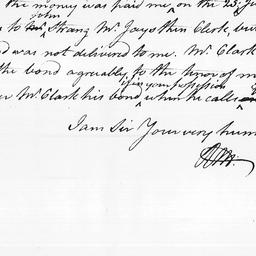 the money was paid me on the 25.
John
to Strang Mr. Jays then Clerk, but
was not delivered to me. Mr. Clark
the bond agreeably to the tenor of m
if in your possession
Mr. Clark his bond when he calls
I am Sir Your very hum